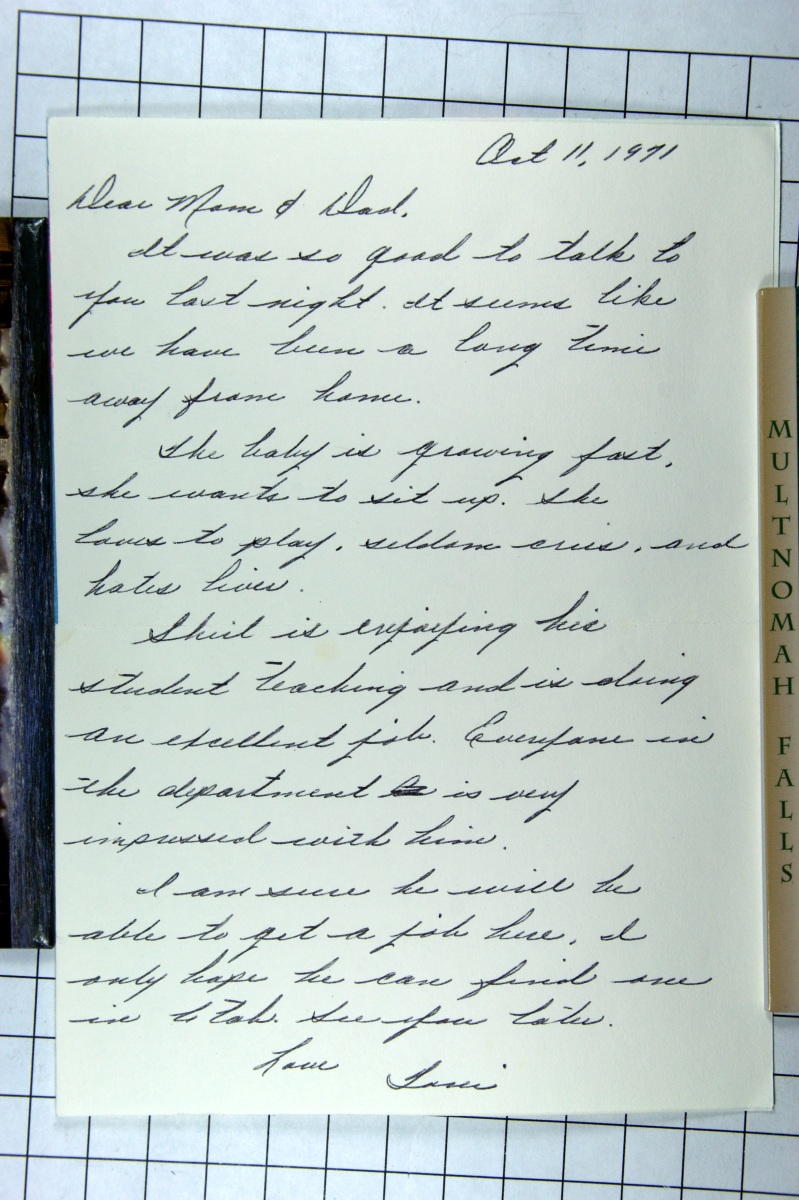 Oct 11, 1971
Dear Mom & Dad,
It was so good to talk to
you last night. It seems like
we have been a long time
away from home.
The baby is growing fast,
she wants to sit up. She
loves to play, seldom cries, and
hates liver.
is enjoying his
student teaching and is doing
an excellent job. Everyone in
the department is very
impressed with him.
I am sure he will be
able to get a job here, I
only hope he can find one
in Utah. See you later.
Love
MULTNOMAH FALLS